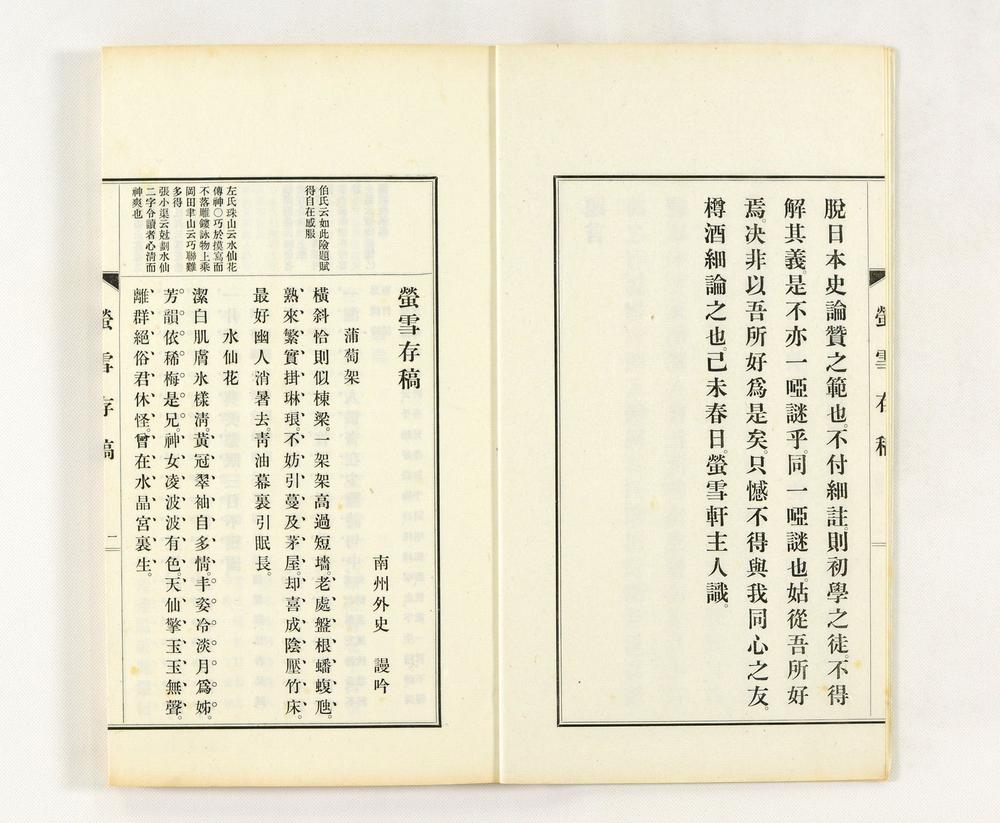 脫日本史論贊之範也。不付細註。則初學之徒。不得
解其義。是不亦一啞謎乎。同一啞謎也。姑從吾所好
焉。决非以吾所好爲是矣。只憾不得與我同心之友。
樽酒細論之也。己未春日。螢雪軒主人識。
螢雪存稿
螢雪存稿
南州外史 謾吟
蒲萄架
伯氏云如此險題賦
得自在感服
橫斜恰則似棟梁。一架架高過短墻。老處盤根蟠蝮虺。
熟來繁實掛琳琅。不妨引蔓及茅屋。却喜成陰壓竹床。
最好幽人消暑去。靑油幕裏引眠長。
水仙花
左氏珠山云水仙花
傳神〇巧於摸寫而
不落雕鏤詠物上乘
岡田聿山云巧聯難
多得
張小渠云尅劃水仙
二字令讀者心淸而
神爽也
潔白肌膚氷樣淸。黃冠翠袖自多情。丰姿冷淡月爲姊。
芳韻依稀梅是兄。神女凌波波有色。天仙擎玉玉無聲。
離群絕俗君休怪。曾在水晶宮裏生。
螢雪存稿
二